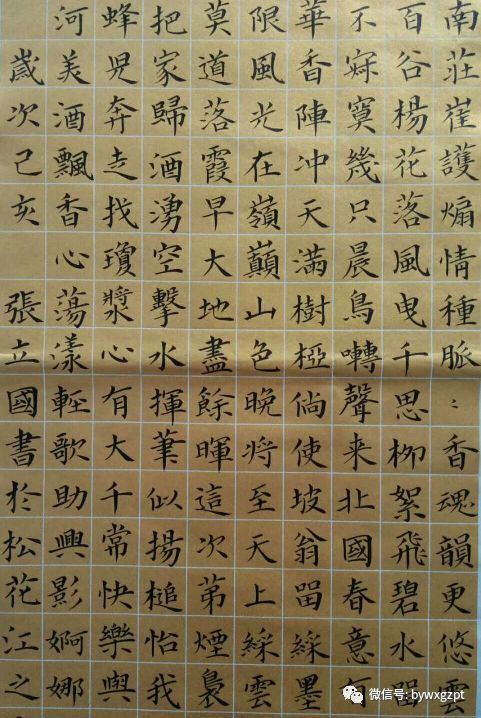 南莊崔護煽情種脈〻香魂韻更悠雲
百谷楊花落風曳千思柳絮飛碧水留
不寂寞幾只晨鳥囀聲来北國春意
華香陣冲天滿樹椏倘使坡翁留綵墨
限風光在嶺巔山色晚將至天上綵雲
莫道落霞早大地盡餘暉這次第煙裊
把家歸酒湧空擊水揮筆似揚槌怡我
蜂兒奔走找瓊漿心有大千常快樂與
河美酒飄香心蕩漾輕歌助興影婀娜
歲次己亥 張立國書於松花江之
微信号: bywxgzpt